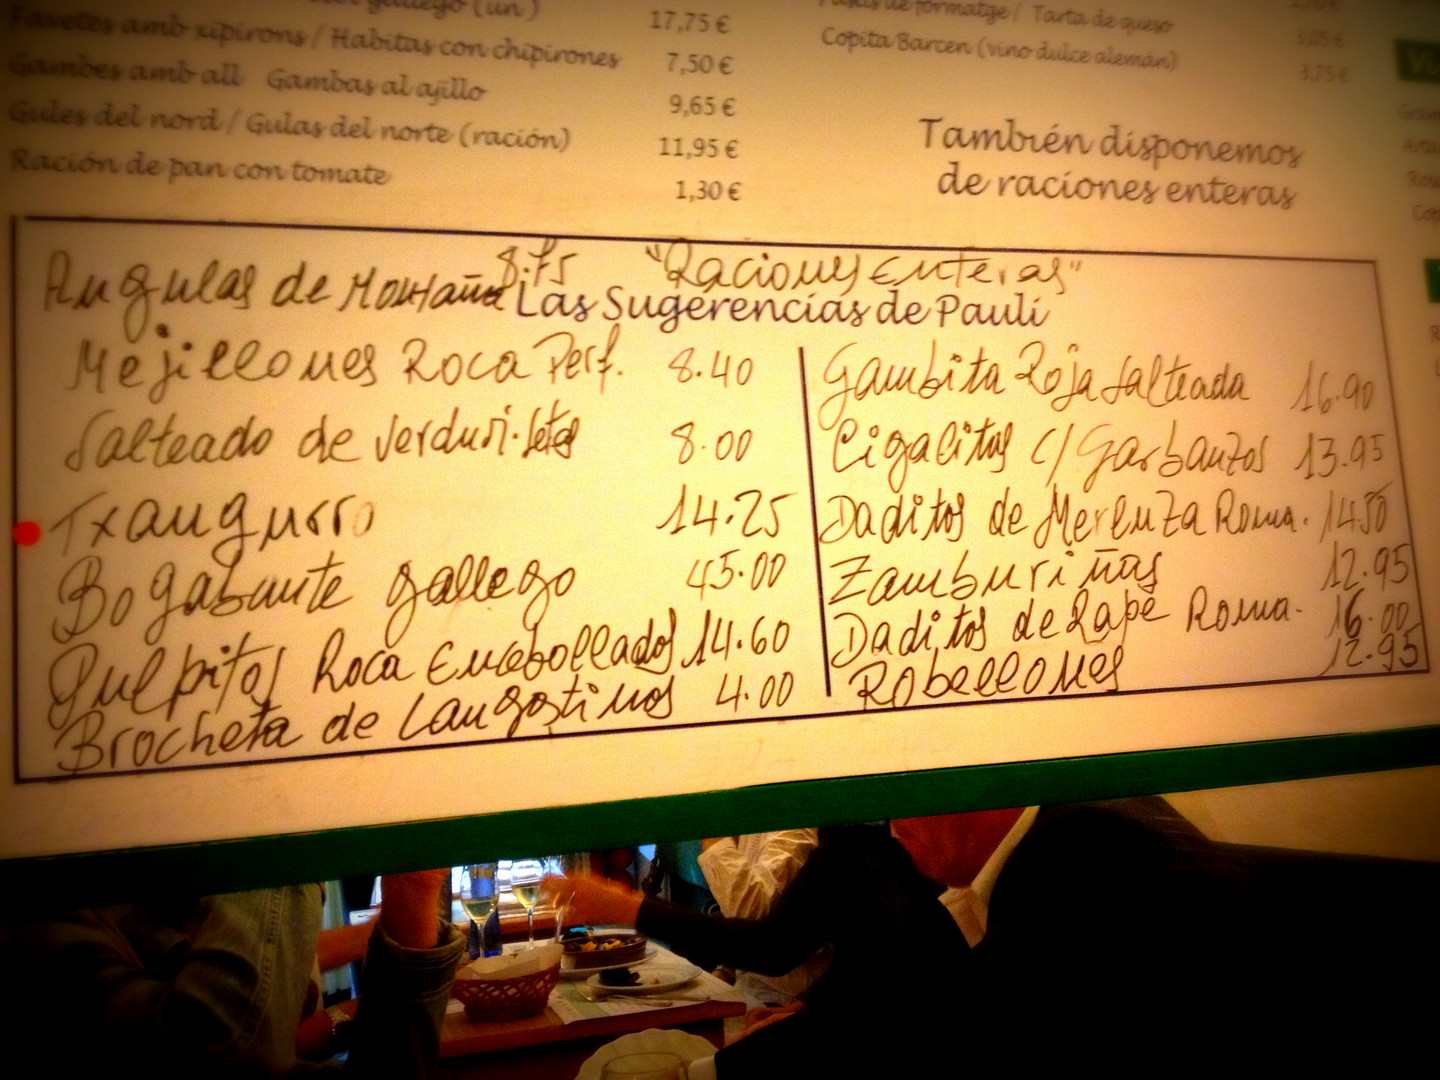 gallego (un ) 17,75 €
Favetes amb xipirons / Habitas con chipirones 7,50 €
Gambes amb all Gambas al ajillo 9,65 €
Gules del nord / Gulas del norte (ración) 11,95 €
Ración de pan con tomate 1,30 €
de formatge / Tarta de queso 3,05 €
Copita Barcen (vino dulce alemán) 3,75 €
También disponemos
de raciones enteras
Angulas de Montaña 8.75
"Raciones Enteras"
Las Sugerencias de Pauli
Mejillones Roca Perf. 8.40
Salteado de Verduri.tetas 8.00
Txangurro 14.25
Bogabante gallego 45.00
Pulpitos Roca Encebollados 14.60
Brocheta de Langostinos 4.00
Gambita Roja Salteada 16.90
Cigalitas c/ Garbanzos 13.95
Daditos de Merluza Roma. 14.50
Zamburiñas 12.95
Daditos de Rape Roma. 16.00
Robellones 12.95